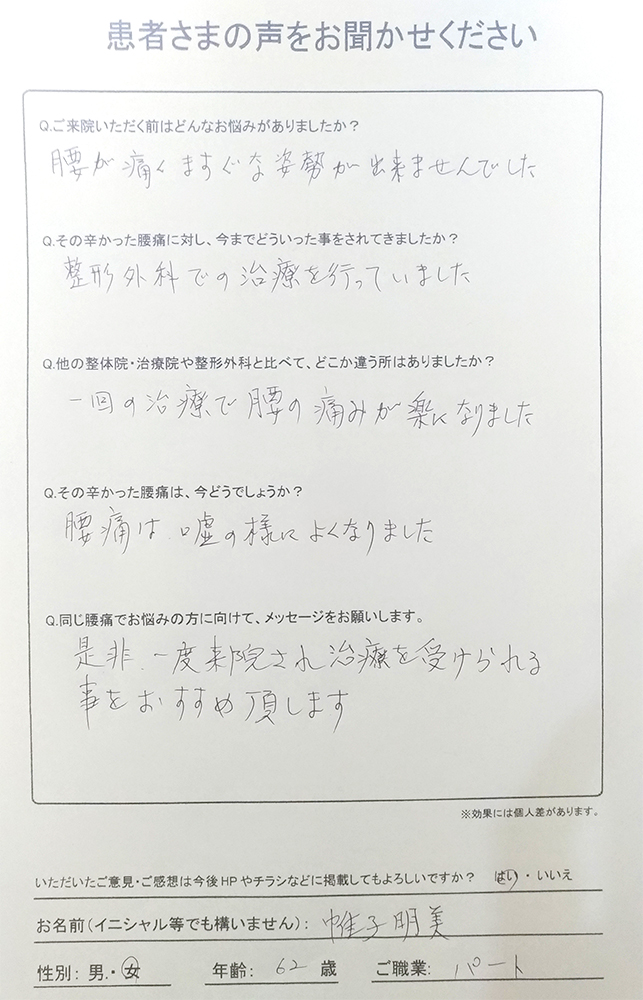 患者さまの声をお聞かせください
Q.ご来院いただく前はどんなお悩みがありましたか？
腰が痛くますぐな姿勢が出来ませんでした
Q.その辛かった腰痛に対し、今までどういった事をされてきましたか？
整形外科での治療を行っていました
Q.他の整体院・治療院や整形外科と比べて、どこか違う所はありましたか？
一回の治療で腰の痛みが楽になりました
Q.その辛かった腰痛は、今どうでしょうか？
腰痛は嘘の様によくなりました
Q.同じ腰痛でお悩みの方に向けて、メッセージをお願いします。
是非、一度来院され治療を受けられる
事をおすすめ頂します
※効果には個人差があります。
いただいたご意見・ご感想は今後HPやチラシなどに掲載してもよろしいですか？ はい・いいえ
お名前（イニシャル等でも構いません）： 子明美
性別：男・女 年齢：62歳 ご職業：パート